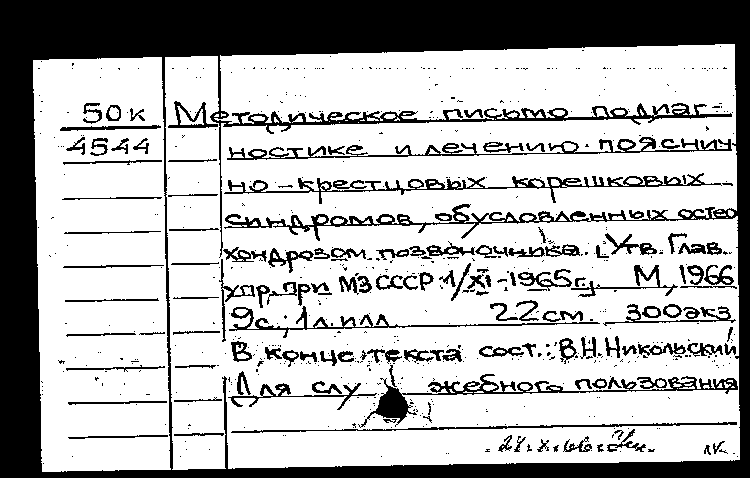 50к Методическое письмо подиаг-
4544 ностике и лечению пояснич
но-крестцовых корешковых
синдромов, обусловленных остео
хондрозом позвоночника. [Утв. Глав.
упр. при МЗ СССР 1/XI-1965г.] М., 1966
9с.; 1л. илл. 22см. 300экз
В конце текста сост.: В.Н.Никольский
Для слу жебного пользования